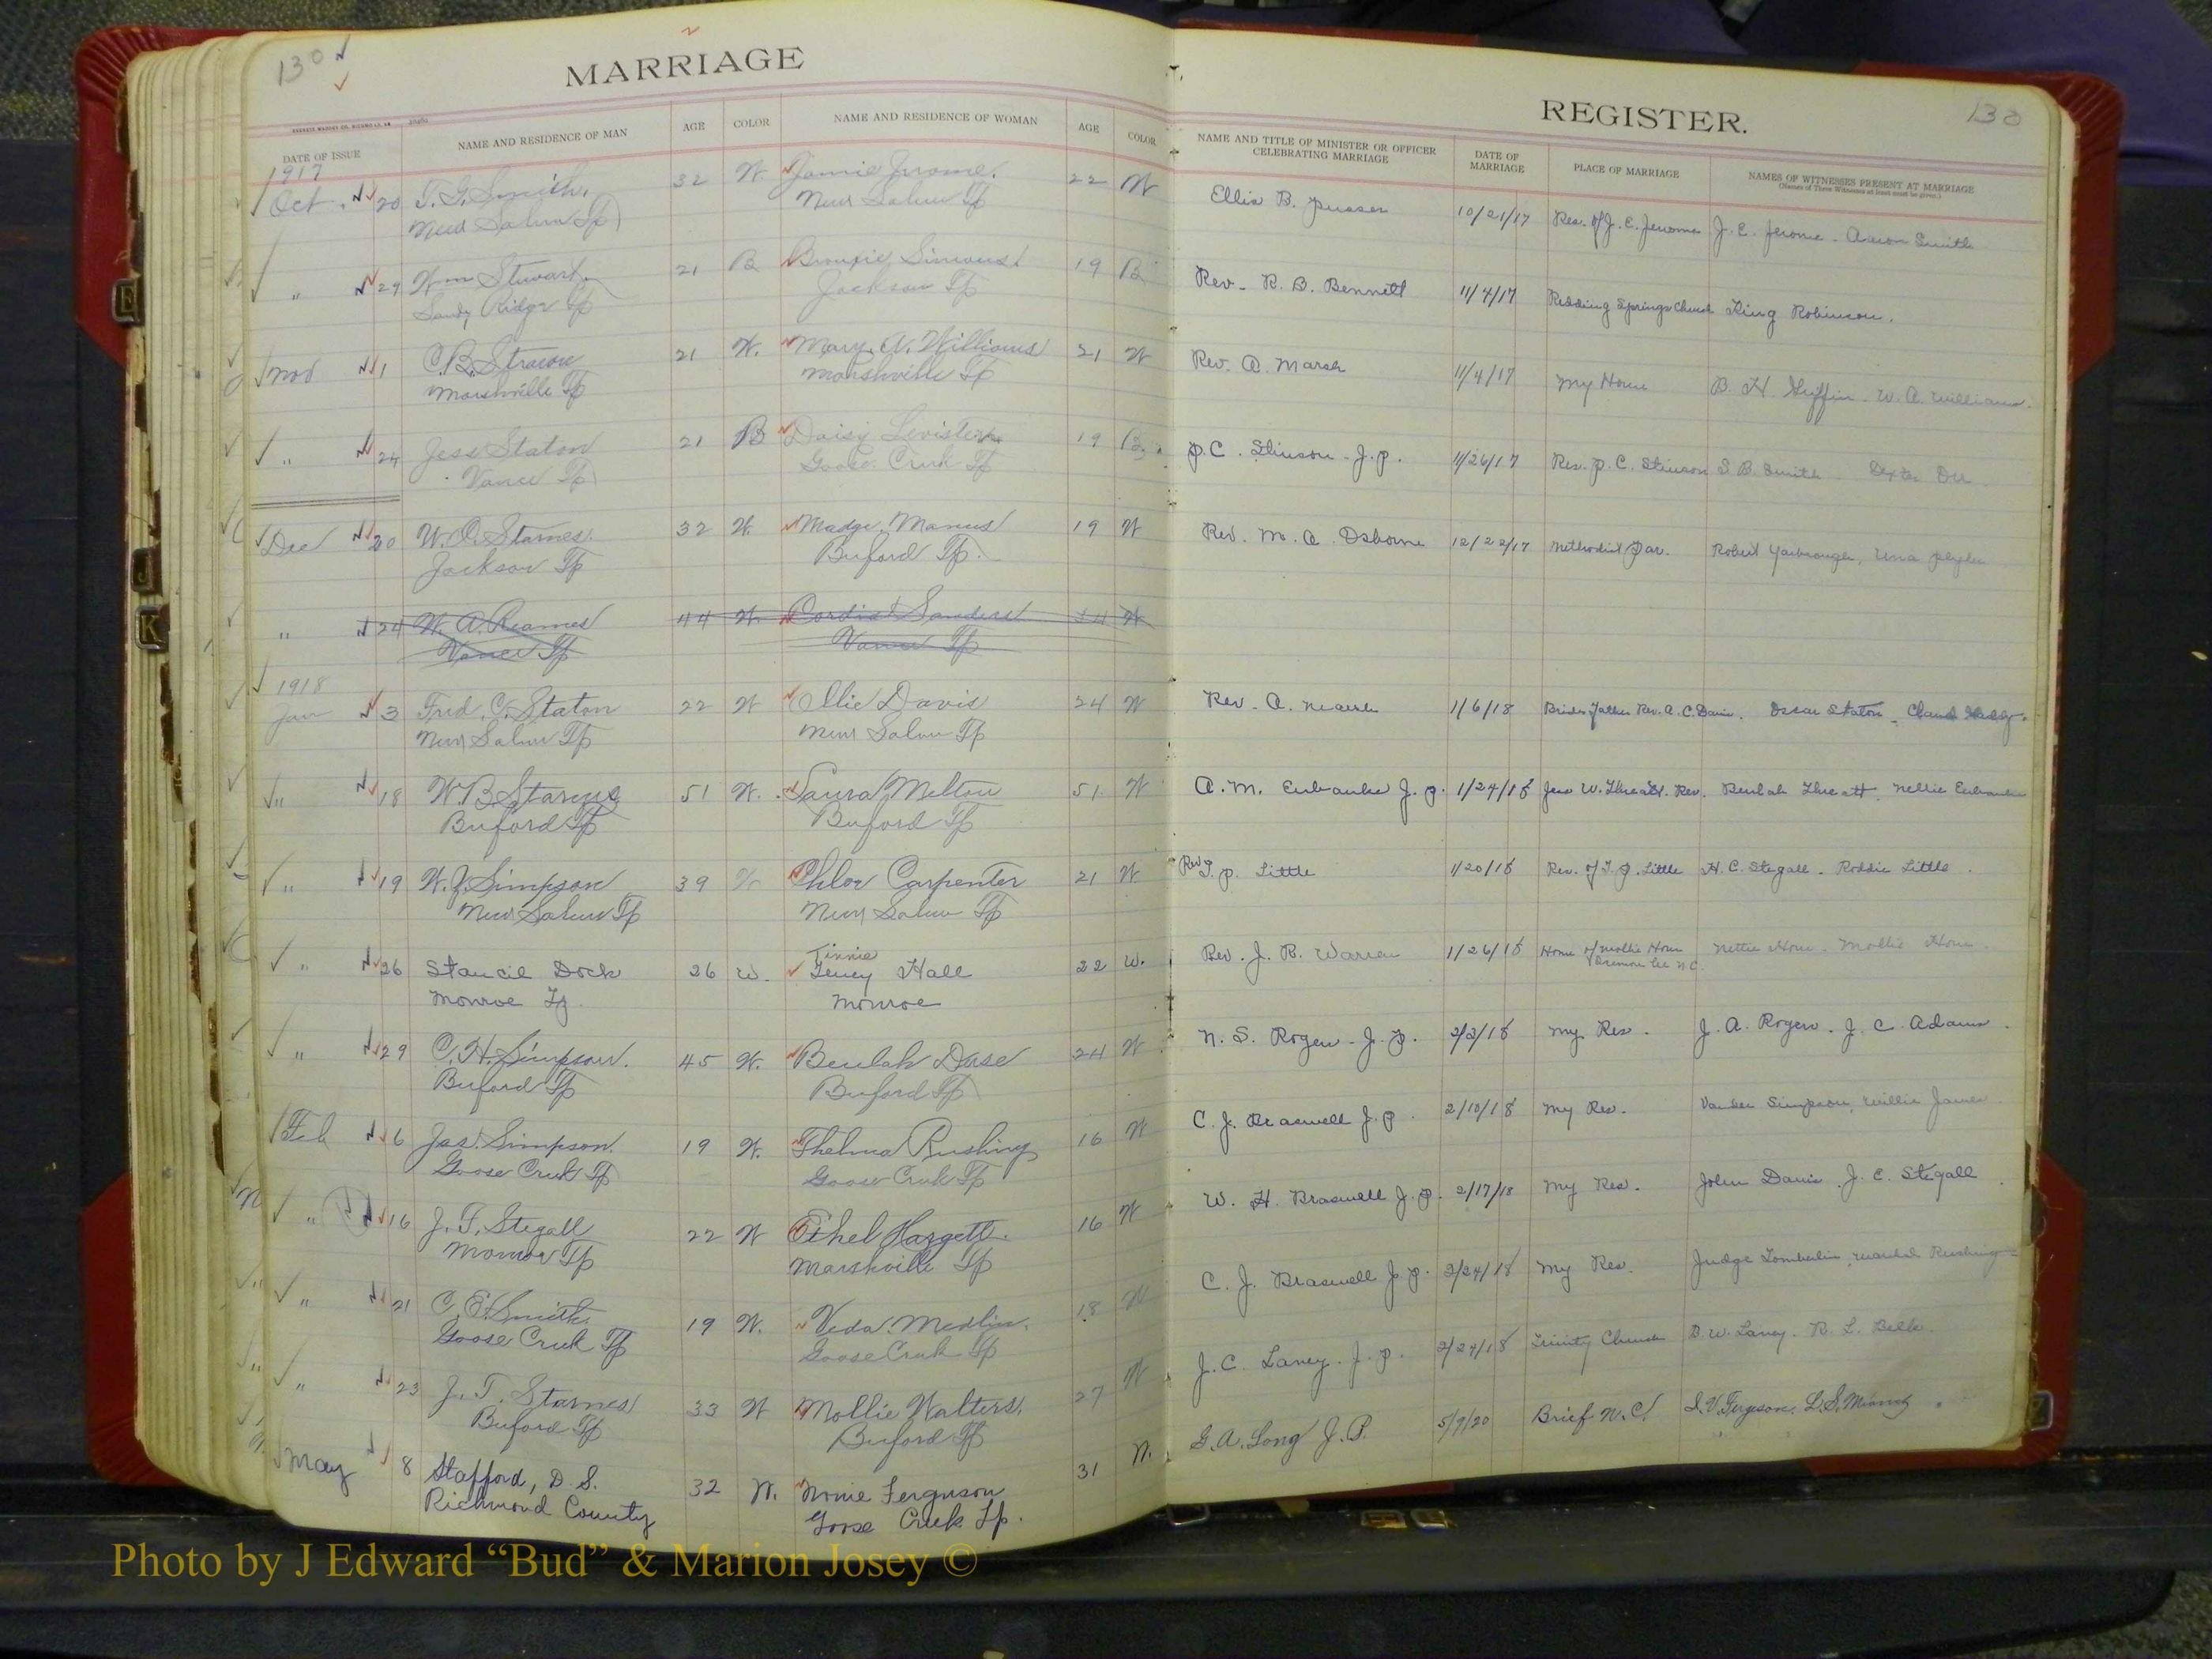 130
MARRIAGE
DATE OF ISSUE NAME AND RESIDENCE OF MAN AGE COLOR NAME AND RESIDENCE OF WOMAN AGE COLOR
1917
Oct. 20 T. G. Smith. 32 W. Jerome. 22 W
New Salem Tp New Salem Tp
" 29 Wm Stewart 21 B 19 B
Sandy Ridge Tp Jackson Tp
Nov 1 C. B. 21 W. Mary A. Williams 21 W
Marshville Tp Marshville Tp
" 24 Jess Staton 21 B Daisy 19 B
Vance Tp Goose Creek Tp
Dec 20 W. O. Starnes. 32 W. Madge Manus 19 W
Jackson Tp Buford Tp.
" 24 W. A. Reames 44 W. Cordia Sanders W
Vance Tp Vance Tp
1918
Jan 3 Fred C. Staton 22 W Ollie Davis 24 W
New Salem Tp New Salem Tp
" 18 W. B. Starnes 51 W. Laura Melton 51 W
Buford Tp Buford Tp
" 19 W. J. Simpson 39 W Chloe Carpenter 21 W
New Salem Tp New Salem Tp
Tinnie
" 26 Stancil Dock 26 W. Hall 22 W.
Monroe Tp. Monroe
" 29 C. H. Simpson. 45 W. Beulah 24 W
Buford Tp Buford Tp
Feb 6 Jas. Simpson. 19 W. Thelma Rushing 16 W
Goose Creek Tp Goose Creek Tp
" 16 J. F. Stegall 22 W Ethel Hargett. 16 W
Monroe Tp Marshville Tp
" 21 C. E. Smith. 19 W. Veda Medlin. 18 W
Goose Creek Tp Goose Creek Tp
" 23 J. T. Starnes 33 W Mollie Walters. 27 W
Buford Tp Buford Tp
May 8 Stafford, D. S. 32 W. Nonie Ferguson 31 W.
Richmond County Goose Creek Tp.
REGISTER.
130
NAME AND TITLE OF MINISTER OR OFFICER CELEBRATING MARRIAGE DATE OF MARRIAGE PLACE OF MARRIAGE NAMES OF WITNESSES PRESENT AT MARRIAGE
(Names of Three Witnesses at least must be given.)
Ellis B. 10/21/17 Res. of J. E. Jerome J. E. Jerome - Aaron Smith
Rev. R. B. Bennett 11/4/17 Redding Springs Church King Robinson.
Rev. A. Marsh 11/4/17 My Home B. H. Griffin - W. A. Williams.
P. C. Stinson - J. P. 11/26/17 Res. P. C. Stinson S. B. Smith - Dexter
Rev. M. A. Osborne 12/22/17 Methodist Par. Robert Yarbrough, Una Plyler
Rev. A. Marsh 1/6/18 Brides Father Res. A. C. Davis. Oscar Staton - Claud
A. M. Eubanks J. P. 1/24/18 W. Threatt. Res. Beulah Threatt, Nellie Eubanks
Rev T. P. Little 1/20/18 Res. of T. P. Little H. C. Stegall - Roddie Little.
Rev. J. R. Warren 1/26/18 Home of Mollie Horn Nettie Horn - Mollie Horn
N. C.
N. S. Rogers - J. P. 2/2/18 My Res. J. A. Rogers. J. C. Adams.
C. J. Braswell J. P. 2/10/18 My Res. Simpson, Willie James
W. H. Braswell J. P. 2/17/18 My Res. John Davis. J. C. Stegall
C. J. Braswell J. P. 2/24/18 My Res. Judge Tomberlin, Rushing
J. C. Laney. J. P. 2/24/18 Trinity Church D. W. Laney. R. L. Belk.
G. A. Long J. P. 5/9/20 Brief N. C. I. V. Ferguson. L. S.
Photo by J Edward “Bud” & Marion Josey ©
E
J
K